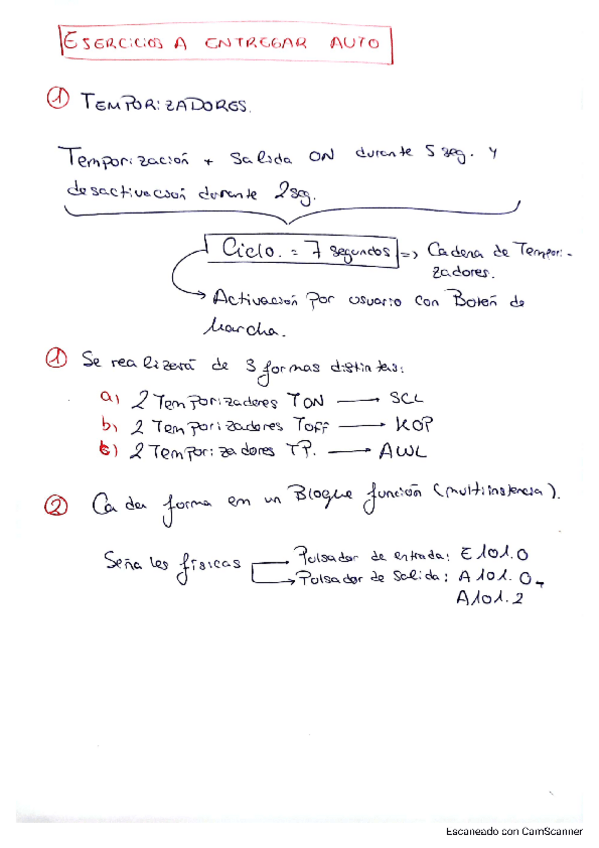 EJERCICIOS A ENTREGAR AUTO
① TEMPORIZADORES.
Temporización + Salida ON durante 5 seg. y
desactivación durante 2 seg.
Ciclo. = 7 segundos => Cadena de Tempori-
zadores.
Activación por usuario con Botón de
Marcha.
① Se realizará de 3 formas distintas:
a) 2 Temporizadores TON → SCL
b) 2 Temporizadores Toff → KOP
c) 2 Temporizadores TP. → AWL
② Cada forma en un Bloque función (multiinstancia).
Señales físicas
Pulsador de entrada: E101.0
Pulsador de Salida: A101.0-
A101.2
Escaneado con CamScanner